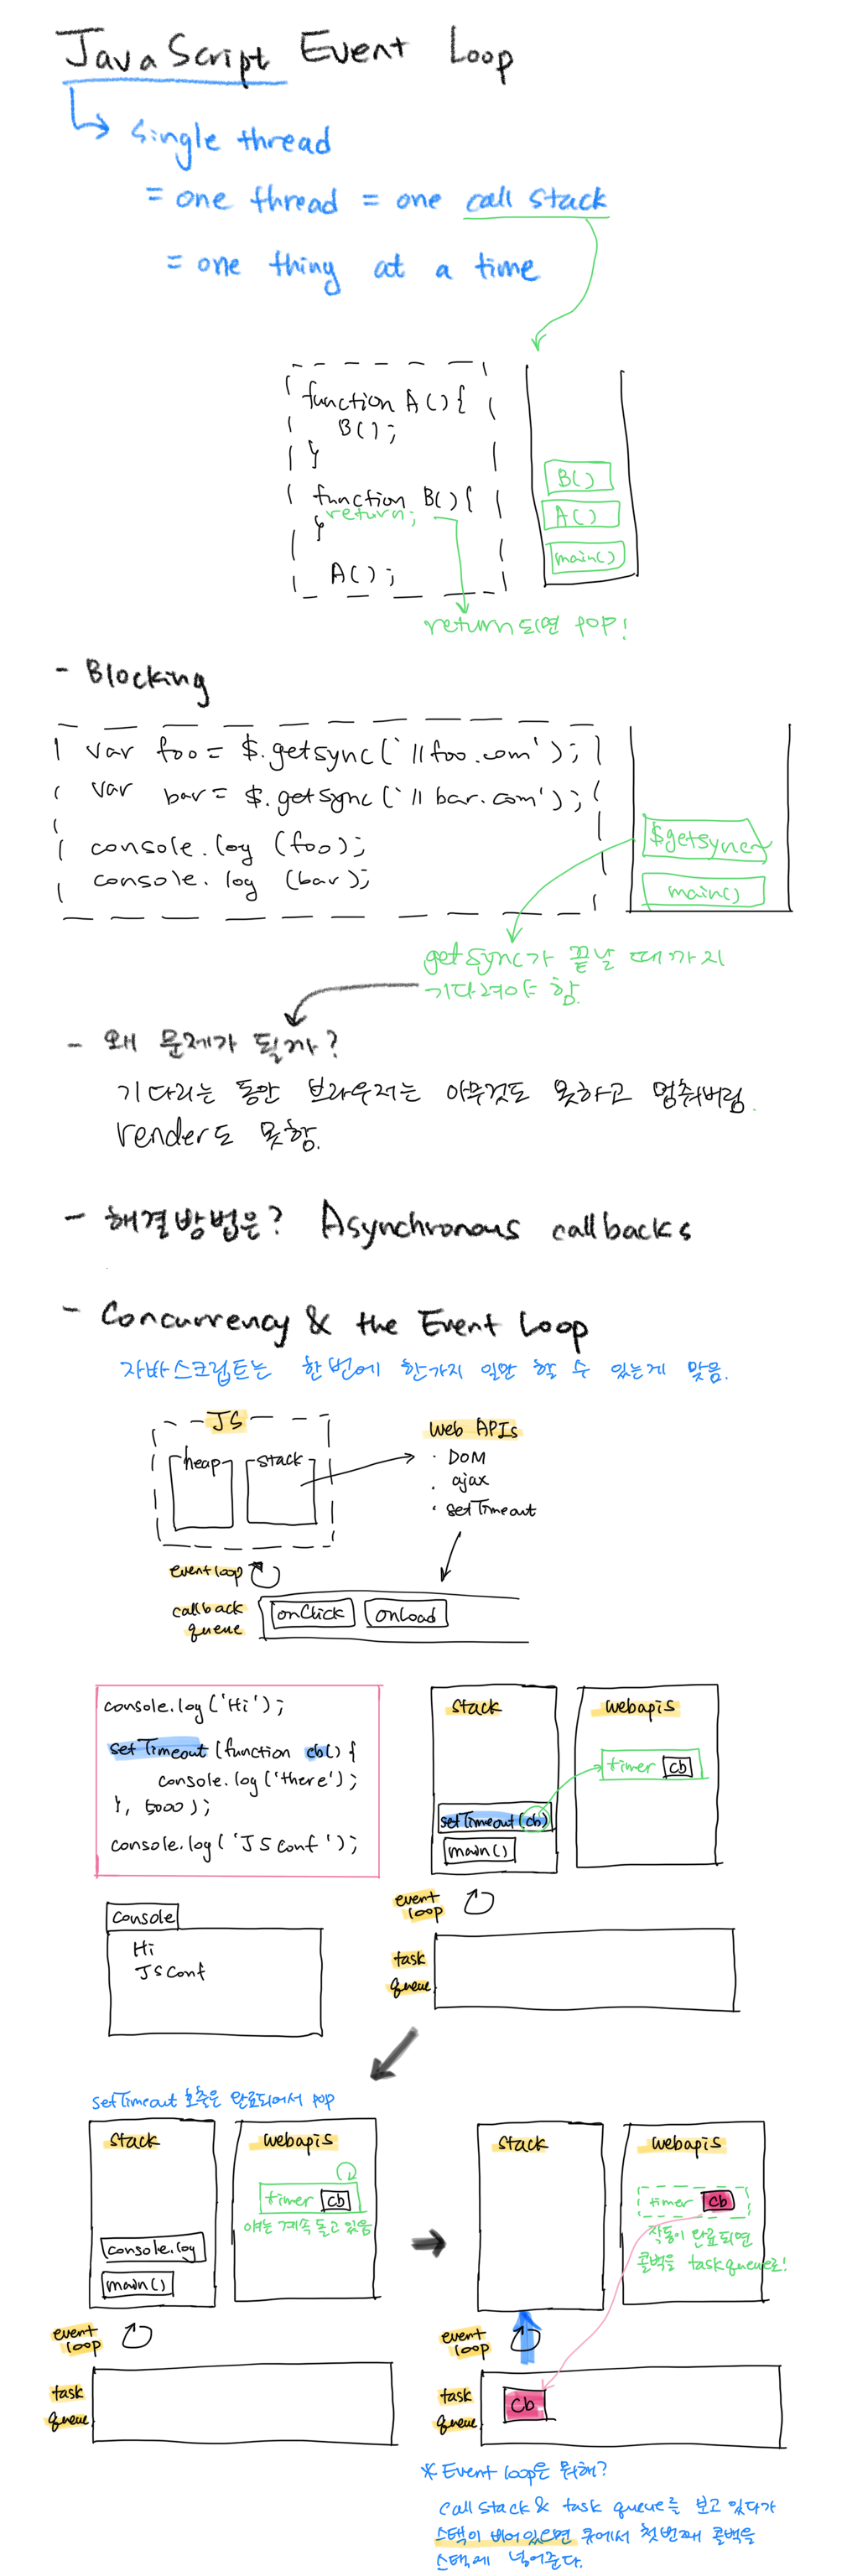 JavaScript Event Loop
single thread
= one thread = one call stack
= one thing at a time
function A(){
B();
}
function B(){
return;
}
A();
B()
A()
main()
return되면 pop!
- Blocking
var foo = $.getsync(`//foo.com');
var bar = $.getsync(`//bar.com');
console.log (foo);
console.log (bar);
$getsync~
main()
getsync가 끝날 때까지
기다려야 함.
- 왜 문제가 될까?
기다리는 동안 브라우저는 아무것도 못하고 멈춰버림.
render도 못함.
- 해결방법은? Asynchronous callbacks
- Concurrency & the Event Loop
자바스크립트는 한번에 한가지 일만 할 수 있는게 맞음.
JS
heap
stack
Web APIs
· DOM
· ajax
· setTimeout
event loop
callback
queue
onClick
onLoad
console.log('Hi');
setTimeout (function cb() {
console.log('there');
}, 5000);
console.log('JSConf');
stack
webapis
timer cb
setTimeout(cb)
main()
event
loop
task
queue
Console
Hi
JSConf
setTimeout 호출은 완료되어서 pop
stack
webapis
timer cb
얘는 계속 돌고 있음
console.log
main()
event
loop
task
queue
stack
webapis
timer cb
작동이 완료되면
콜백을 task queue로!
event
loop
task
queue
cb
* Event loop은 뭐해?
call stack & task queue를 보고 있다가
스택이 비어있으면 큐에서 첫번째 콜백을
스택에 넣어준다.